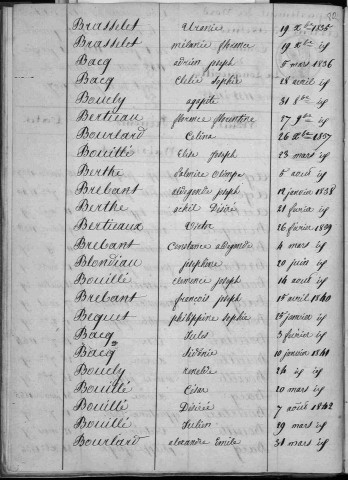 Brasselet Uranie 19 Xbre 1835
Brasselet mélanie florence 19 Xbre id
Bacq adrien joseph 5 mars 1836
Bacq Clélie Sophie 18 avril id
Boucly agapite 31 8bre id
Bertieau florence florentine 27 9bre id
Bourlard Celina 26 Xbre 1837
Bouillé Elise joseph 23 mars id
Berthe Palmire Olimpe 5 août id
Brebant aldegonde joseph 12 janvier 1838
Berthe Achil Désiré 21 fevrier id
Bertieaux Victor 26 février 1839
Brebant Constance aldegonde 4 mars id
Blondiau josephine 20 juin id
Bouillé clemence joseph 14 août id
Brebant françois joseph 15 avril 1840
Bequet philippine Sophie 25 janvier id
Bacq Jules 3 fevrier id
Bacq Sidonie 10 janvier 1841
Boucly Romélie 24 id id
Bouillé César 20 mars id
Bouillé Désirée 7 août 1842
Bouillé Julien 29 mars id
Bourlard alexandre Emile 31 mars id